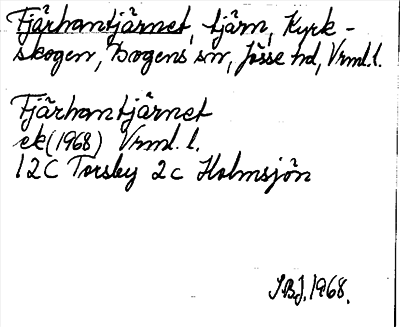 Fjärhantjärnet, tjärn, Kyrk-
skogen, Bogens sn, Jösse hd, Vrml.l.
Fjärhantjärnet
ek (1968) Vrml. l.
12C Torsby 2c Holmsjön
S.B.J. 1968.